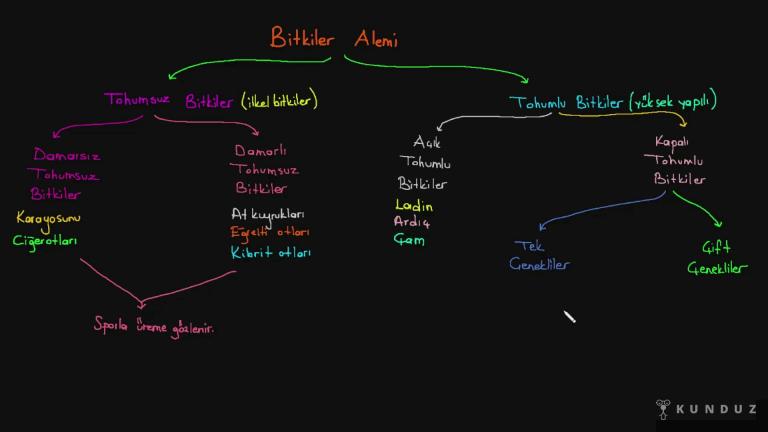 Bitkiler Alemi
Tohumsuz Bitkiler (ilkel bitkiler)
Tohumlu Bitkiler (yüksek yapılı)
Damarsız
Tohumsuz
Bitkiler
Karayosunu
Ciğerotları
Damarlı
Tohumsuz
Bitkiler
At kuyrukları
Eğrelti otları
Kibrit otları
Sporla üreme gözlenir.
Açık
Tohumlu
Bitkiler
Ladin
Ardıç
Çam
Kapalı
Tohumlu
Bitkiler
Tek
Çenekliler
Çift
Çenekliler
KUNDUZ